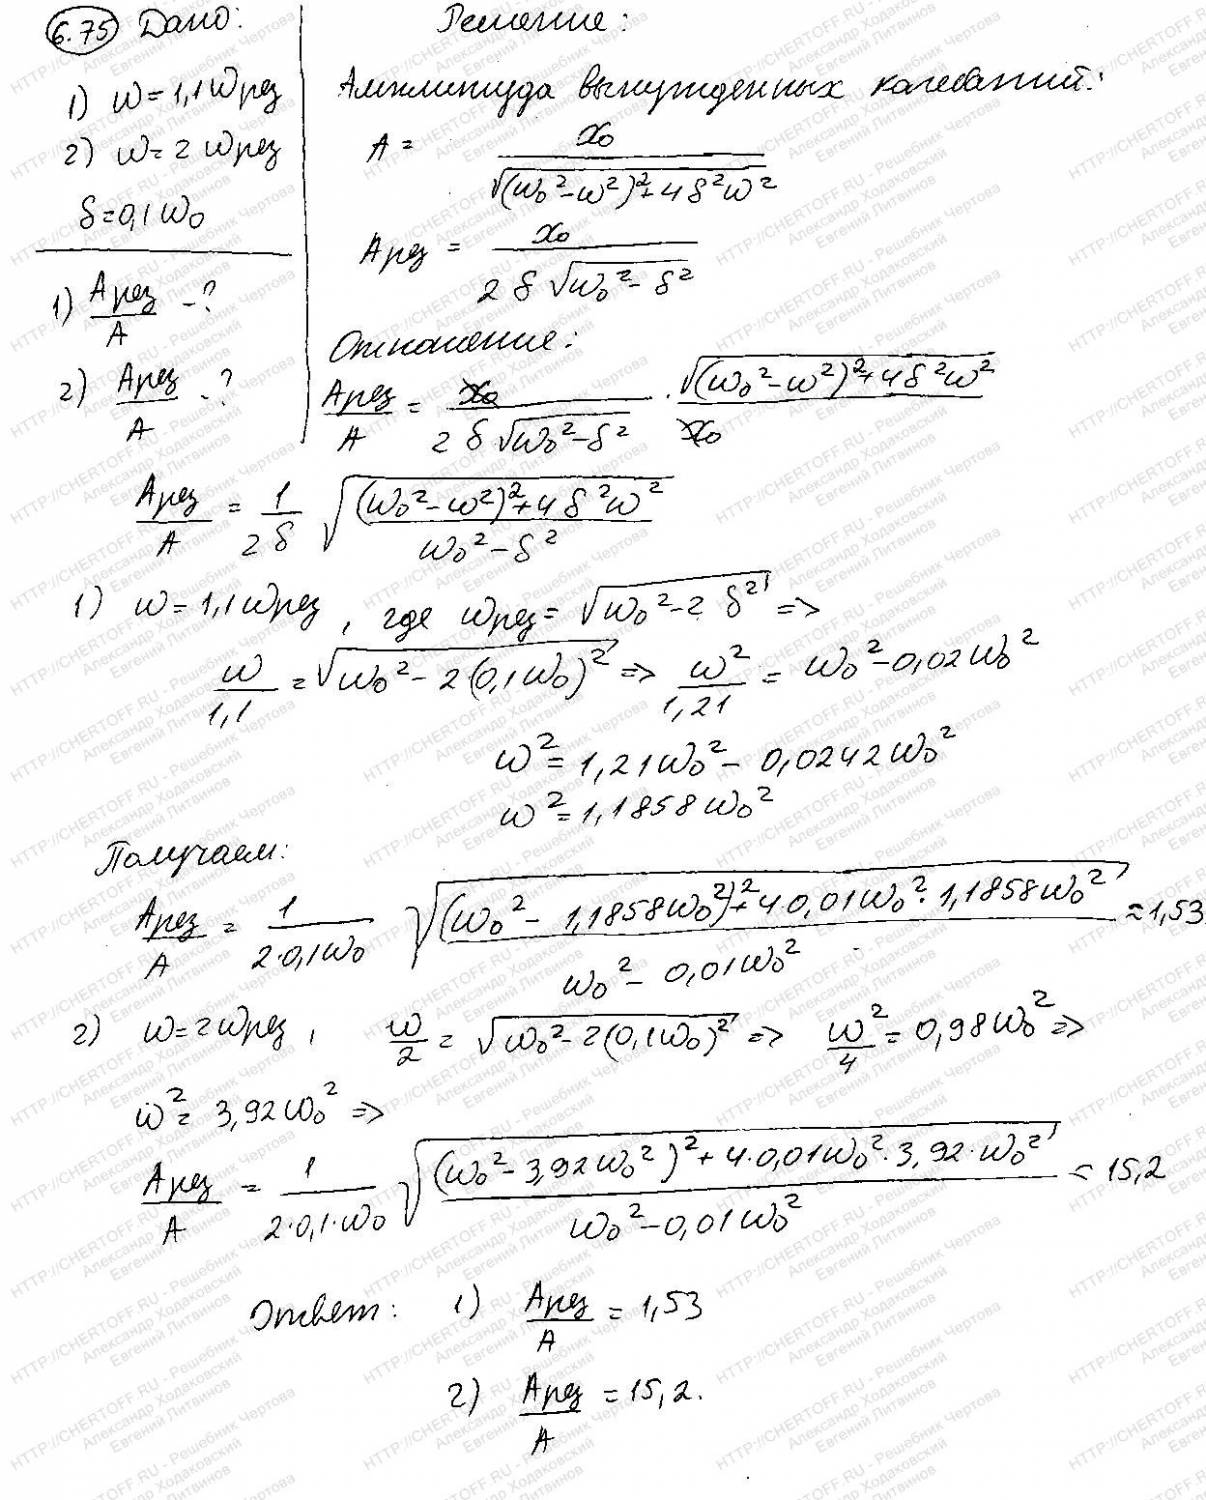 6.75 Дано: Решение:
1) ω = 1,1 ωрез
2) ω = 2 ωрез
δ = 0,1 ω₀
1) Aрез/A - ?
2) Aрез/A - ?
Амплитуда вынужденных колебаний:
A = x₀/√((ω₀² - ω²)² + 4δ²ω²)
Aрез = x₀/(2δ√(ω₀² - δ²))
Отношение:
Aрез/A = x₀/(2δ·√(ω₀² - δ²)) · √((ω₀² - ω²)² + 4δ²ω²)/x₀
Aрез/A = 1/(2δ) √(((ω₀² - ω²)² + 4δ²ω²)/(ω₀² - δ²))
1) ω = 1,1 ωрез, где ωрез = √(ω₀² - 2δ²) =>
ω/1,1 = √(ω₀² - 2(0,1ω₀)²) => ω²/1,21 = ω₀² - 0,02ω₀²
ω² = 1,21ω₀² - 0,0242ω₀²
ω² = 1,1858ω₀²
Получаем:
Aрез/A = 1/(2·0,1ω₀) √(((ω₀² - 1,1858ω₀²)² + 4·0,01ω₀²·1,1858ω₀²)/(ω₀² - 0,01ω₀²)) ≈ 1,53
2) ω = 2ωрез, ω/2 = √(ω₀² - 2(0,1ω₀)²) => ω²/4 = 0,98ω₀² =>
ω² = 3,92ω₀² =>
Aрез/A = 1/(2·0,1·ω₀) √(((ω₀² - 3,92ω₀²)² + 4·0,01ω₀²·3,92·ω₀²)/(ω₀² - 0,01ω₀²)) = 15,2
Ответ: 1) Aрез/A = 1,53
2) Aрез/A = 15,2.
HTTP://CHERTOFF.RU - Решебник Чертова
Александр Ходаковский
Евгений Литвинов